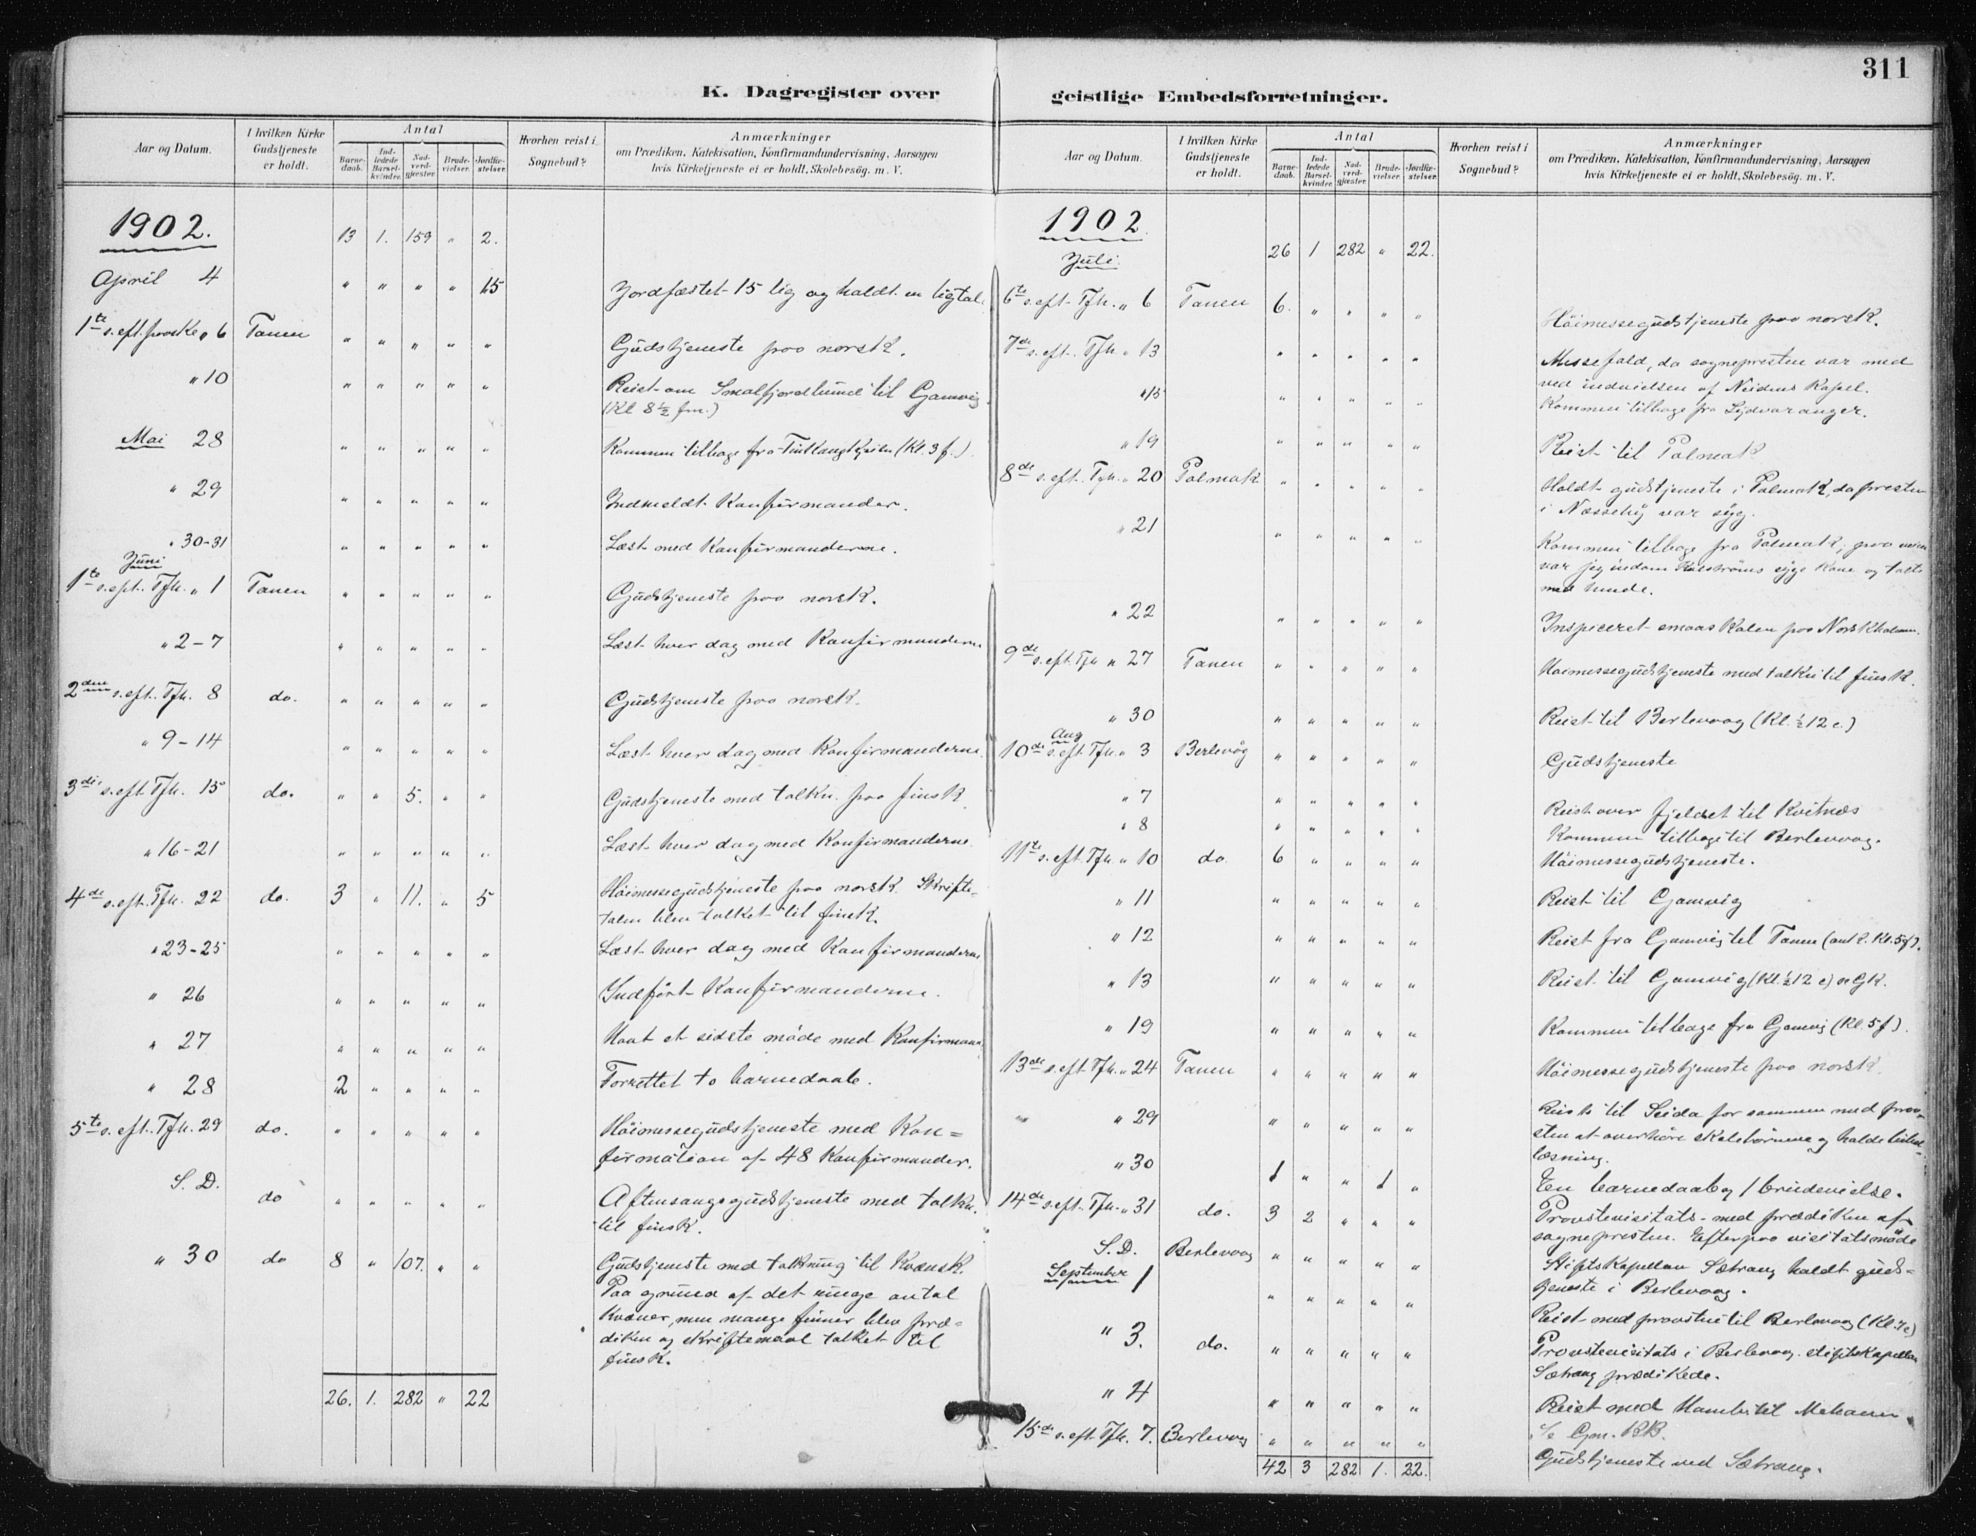 311
K. Dagregister over geistlige Embedsforretninger.
Aar og Datum. I hvilken Kirke Gudstjeneste er holdt. Antal Barnedaab. Indledede Barselkvinder. Nadverdgjæster. Brudevielser. Jordfæstelser. Hvorhen reist i Sognebud? Anmærkninger om Prædiken, Katekisation, Konfirmandundervisning, Aarsagen hvis Kirketjeneste ei er holdt, Skolebesøg. m. V.
1902. 13 1. 159 " 2.
April 4 " " " " 15 Jordfæstet 15 lig og holdt en ligtal.
1te s. eft. paaske " 6 Tanen " " " " " Gudstjeneste paa norsk.
" 10 " " " " " Reist om Smalfjordbund til Gamvig
(Kl 8 ½ fm.)
Mai 28 " " " " " Kommen tilbage fra (Kl. 3 f.)
" 29 " " " " " Indmeldt Konfirmander.
" 30-31 " " " " " Læst med Konfirmanderne.
Juni
1te s. eft. Tfh. " 1 Tanen " " " " " Gudstjeneste paa norsk.
" 2-7 " " " " " Læst hver dag med Konfirmanderne
2den s. eft. Tfh. 8 do. " " " " " Gudstjeneste paa norsk.
" 9-14 " " " " " Læst hver dag med Konfirmanderne.
3die s. eft. Tfh. 15 do. " " 5. " " Gudstjeneste med tolkn. paa finsk
" 16-21 " " " " " Læst hver dag med Konfirmanderne.
4de s. eft. Tfh. 22 do. 3 " 11. " 5 Höimessegudstjeneste paa norsk. Skrifte-
talen blev tolket til finsk.
" 23-25 " " " " " Læst hver dag med Konfirmanderne
" 26 " " " " " Indført Konfirmanderne.
" 27 " " " " " Havt et sidste møde med Konfirmand.
" 28 2 " " " " Forrettet to barnedaab.
5te s. eft. Tfh. 29 do. " " " " " Höimessegudstjeneste med Kon=
firmation af 48 Konfirmander.
S. D. do " " " " " Aftensangsgudstjeneste med tolkn.
til finsk.
" 30 do 8 " 107. " " Gudstjeneste med tolkning til Kvænsk.
Paa grund af det ringe antal
Kvæner, men mange finner blev præ-
diken og skriftemaal tolket til
finsk.
26. 1. 282 " 22
Aar og Datum. I hvilken Kirke Gudstjeneste er holdt. Antal Barnedaab. Indledede Barselkvinder. Nadverdgjæster. Brudevielser. Jordfæstelser. Hvorhen reist i Sognebud? Anmærkninger om Prædiken, Katekisation, Konfirmandundervisning, Aarsagen hvis Kirketjeneste ei er holdt, Skolebesøg. m. V.
1902. 26 1 282 " 22.
Juli.
6te s. eft. Tfh. " 6 Tanen 6. " " " " Höimessegudstjeneste paa norsk.
7de s. eft. Tfh. " 13 " " " " " Messefald, da sognepresten var med
ved indvielsen af Neidens Kapel.
" 15 " " " " " Kommen tilbage fra Sydvaranger.
" 19 " " " " " Reist til Polmak
8de s. eft. Tfh. " 20 Polmak " " " " " Holdt gudstjeneste i Polmak, da presten
i Nesseby var syg.
" 21 " " " " " Kommen tilbage fra Polmak; paa veien
var jeg indom syge Kone og talte
med hende.
" 22 " " " " " Inspiceret smaaskolen paa Norskholmen.
9de s. eft. Tfh. " 27 Tanen " " " " " Höimessegudstjeneste med tolkn. til finsk.
" 30 " " " " " Reist til Berlevaag (Kl. ½ 12 e.)
Aug
10de s. eft. Tfh. " 3 Berlevåg " " " " " Gudstjeneste
" 7 " " " " " Reist over fjeldet til Kvitnes
" 8 " " " " " Kommen tilbage til Berlevaag.
11te s. eft. Tfh. " 10 do. 6 " " " " Höimessegudstjeneste.
" 11 " " " " " Reist til Gamvig
" 12 " " " " " Reist fra Gamvig til Tanen (ank. Kl. 5 f).
" 13 " " " " " Reist til Gamvig (Kl. ½ 12 e)
" 19 " " " " " Kommen tilbage fra Gamvig (Kl. 5 f).
13de s. eft. Tfh. " 24 Tanen " " " " " Höimessegudstjeneste paa norsk.
" " 29 " " " " " Reist til Seida for sammen med prov-
sten at overhøre skolebørnene og holde bibel-
læsning.
" 30 1 " " 1 " En barnedaab og 1 brudevielse.
14de s. eft. Tfh. " 31 do. 3 2 " " " Provstevisitats med prædiken af
sognepresten. Efterpaa visitatsmøde
S. D. Berlevaag " " " " " Stiftskapellan Sætrang holdt guds-
tjeneste i Berlevaag.
September 1 " " " " " Reist med provsten til Berlevaag
" 3. do. " " " " " Provstevisitats i Berlevaag. stiftskapellan
Sætrang prædikede.
" 4 " " " " " Reist med til Mehavn
15de s. eft. Tfh. 7. Berlevaag " " " " " Gudstjeneste ved Sætrang.
42 3 282 1. 22.